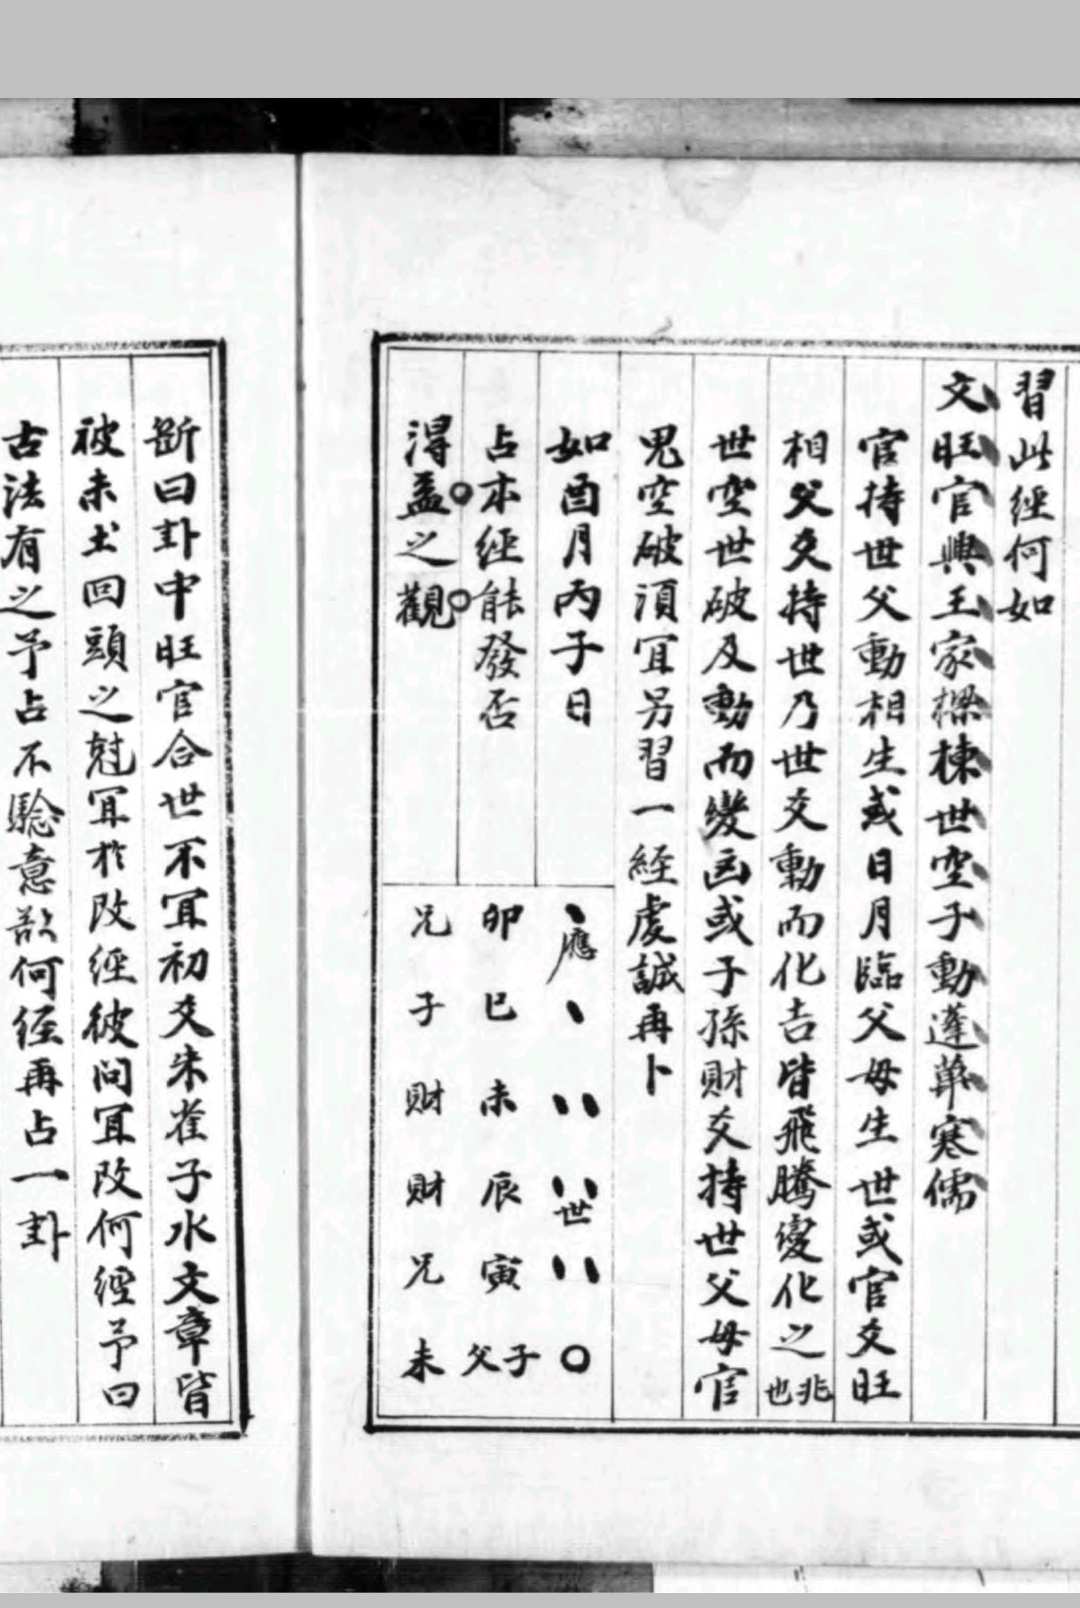 習此經何如
文旺官興王家樑棟世空子動蓬蓽寒儒
官持世父動相生或日月臨父母生世或官爻旺
相父爻持世乃世爻動而化吉皆飛騰變化之兆也
世空世破及動而變凶或子孫財爻持世父母官
鬼空破須冝另習一經虔誠再卜
如酉月丙子日
占本經能發否
得益之觀
應 世
卯 巳 未 辰 寅 父子
兄 子 財 財 兄 未
斷曰卦中旺官合世不冝初爻朱雀子水文章皆
被未土回頭之尅冝於改經彼問冝改何經予曰
古法有之予占不驗意欲何經再占一卦